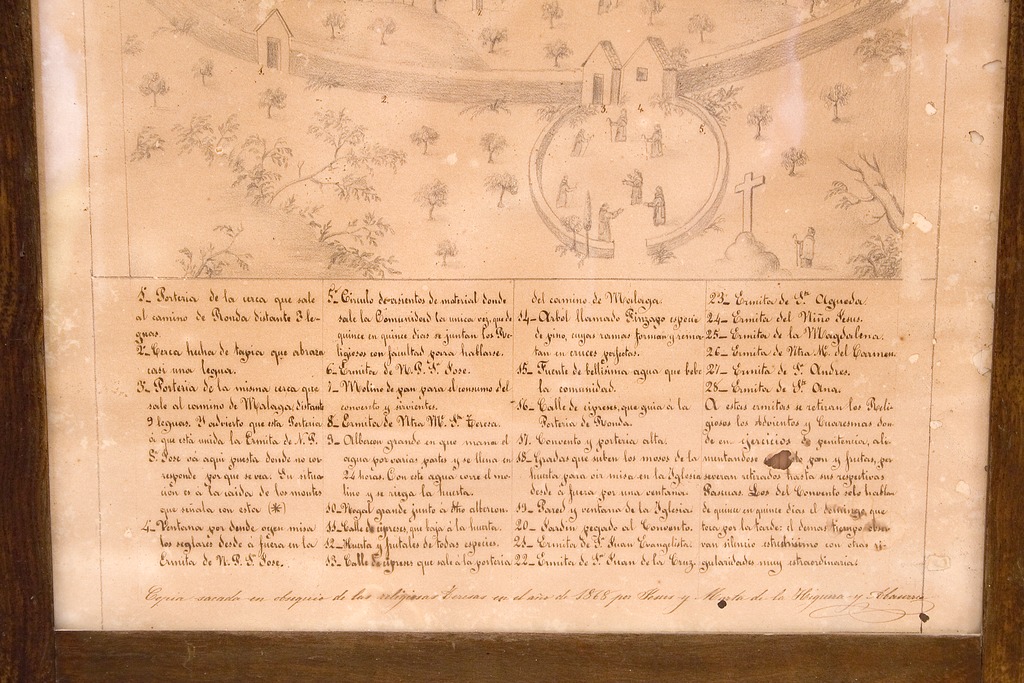 1.
2.
3.
4.
5.
1.ª Porteria de la cerca que sale
al camino de Ronda distante 3 le-
guas.
2.ª Cerca hecha de tapia que abraza
casi una legua.
3.ª Porteria de la misma cerca que
sale al camino de Malaga, distante
9 leguas. Y advierto que esta Porteria
á que está unida la Ermita de N. P.
S. Jose va aqui puesta donde no cor-
responde por que se vea. Su situa-
cion es á la caida de los montes
que señala con esta (*)
4.- Ventana por donde oyen misa
los seglares desde á fuera en la
Ermita de N. P. S. Jose.
5.ª Circulo de asientos de material donde
sale la Comunidad la unica vez, que de
quince en quince dias se juntan los Re-
ligiosos con facultad para hablarse.
6- Ermita de N. P. S. Jose.
7- Molino de pan para el consumo del
convento y sirvientes.
8- Ermita de Ntra M. Sta Teresa.
9- Albercon grande en que mana el
agua por varias partes y se llena en
24 horas. Con este agua corre el mo-
lino y se riega la huerta.
10- Nogal grande junto á dho albercon.
11- Calle de cipreses que baja á la huerta.
12- Huerta y frutales de todas especies.
13- Calle de cipreses que sale á la porteria
del camino de Malaga.
14- Arbol llamado Pinzapo especie
de pino, cuyas ramas forman y rema-
tan en cruces perfectas.
15- Fuente de bellisima agua que bebe
la comunidad.
16- Calle de cipreses, que guia á la
Porteria de Ronda.
17. Convento y porteria alta.
18- Gradas que suben los mosos de la
huerta para oir misa en la Iglesia
desde á fuera por una ventana.
19- Pared y ventana de la Iglesia.
20- Jardin pegado al Convento.
21- Ermita de S. Juan Evangelista.
22- Ermita de S. Juan de la Cruz.
23- Ermita de Sta Agueda.
24- Ermita del Niño Jesus.
25- Ermita de la Magdalena.
26- Ermita de Ntra M. del Carmen.
27- Ermita de S. Andres.
28- Ermita de Sta Ana.
A estas ermitas se retiran los Reli-
giosos los Advientos y Cuaresmas don-
de en ejercicios de penitencia, ali-
mentandose pan y frutas, per-
severan retirados hasta sus respectivas
Pascuas. Los del Convento solo hablan
de quince en quince dias el domingo que
toca por la tarde: el demas tiempo obser-
van silencio estrechisimo con otras si-
gularidades muy estraordinarias.
Copia sacada en obsequio de las religiosas Teresas en el año de 1868 por y de la Higuera y